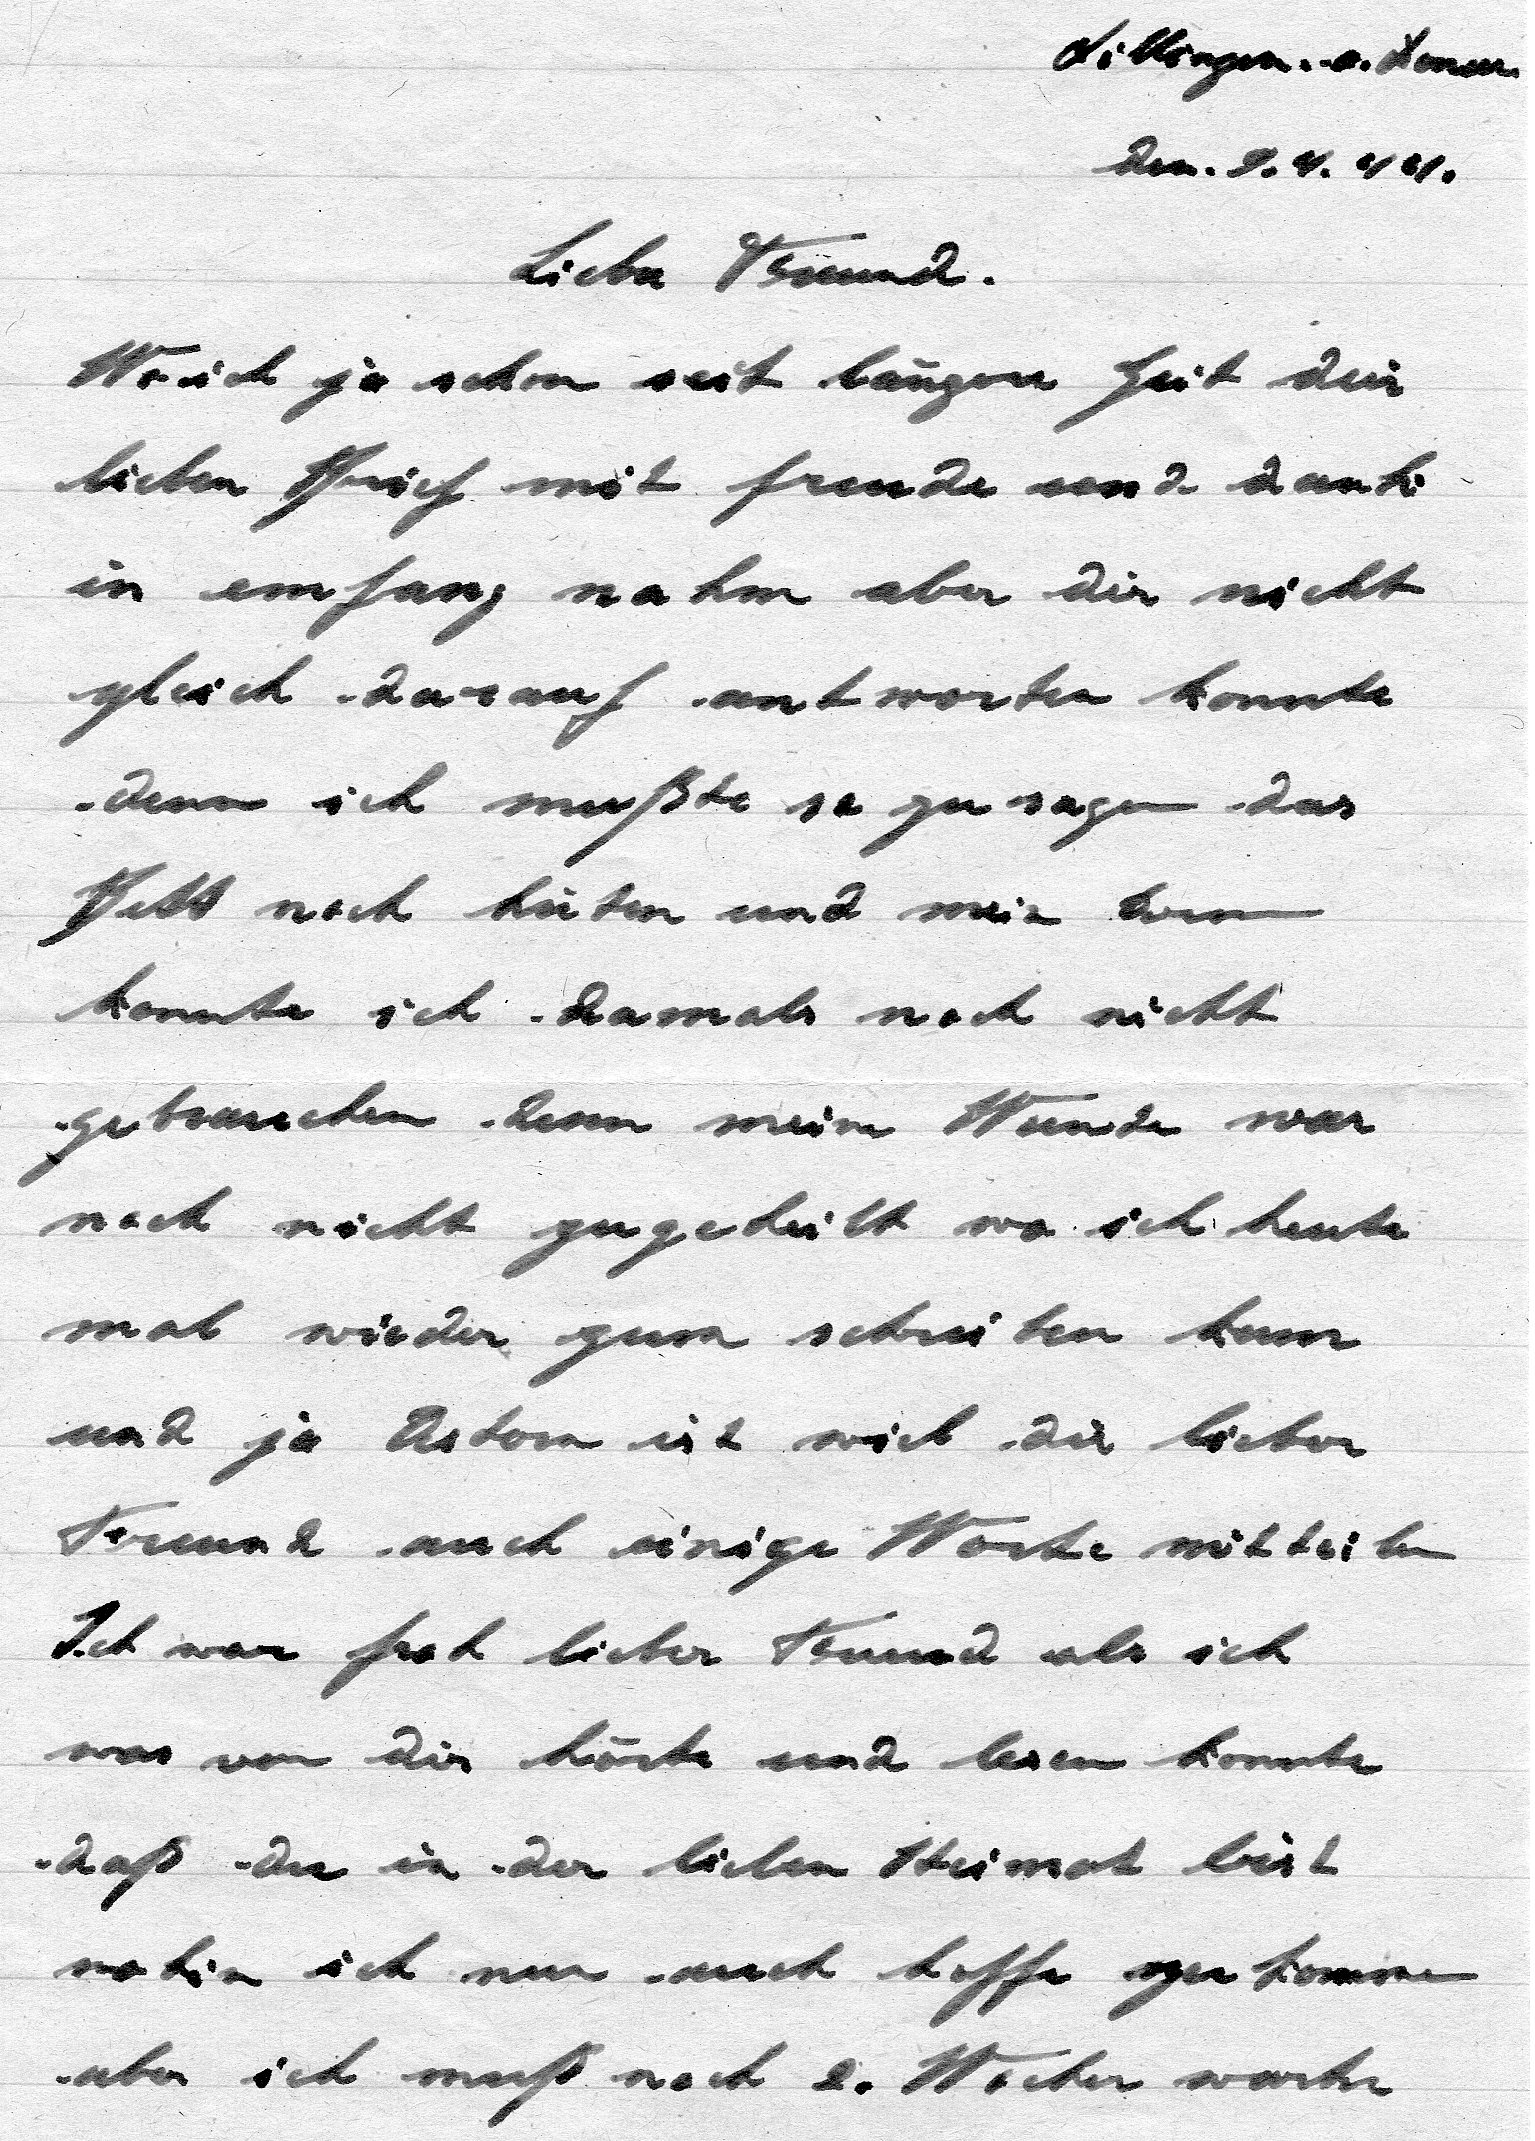 Dillingen. a. Donau.
den. 9. 4. 44.
Lieber Freund.
Wo ich ja schon seit längerer Zeit dein
lieben Brief mit freude und dank
in emfang nahm aber dir nicht
gleich darauf antworten konnte
denn ich mußte so zu sagen das
Bett noch hüten und mein Arm
konnte ich damals noch nicht
gebrauchen denn meine Wunde war
noch nicht zugeheilt wo ich heute
mal wieder zum schreiben kam
und ja Ostern ist will dir lieber
Freund auch einige Worte mitteilen
Ich war froh lieber Freund als ich
was von dir hörte und lesen konnte
daß du in der lieben Heimat bist
wohin ich nur auch hoffe zu kommen
aber ich muß noch 2. Wochen warten